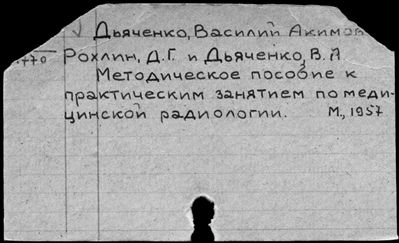 √ Дьяченко, Василий Акимов
Рохлин, Д.Г. и Дьяченко, В.А
Методическое пособие к
практическим занятием по меди-
цинской радиологии. М., 1957